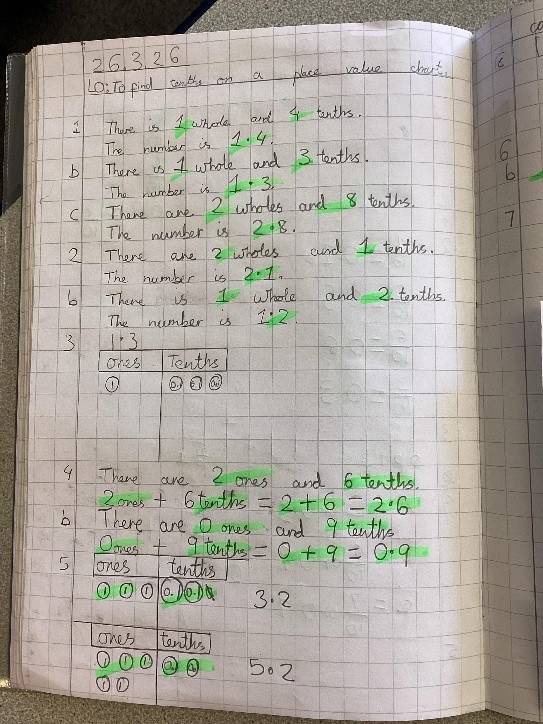 26.3.26
LO: To find tenths on a place value chart.
1 There is 1 whole and 4 tenths.
The number is 1.4.
b There is 1 whole and 3 tenths.
The number is 1.3.
c There are 2 wholes and 8 tenths.
The number is 2.8.
2 There are 2 wholes and 1 tenths.
The number is 2.1.
b There is 1 whole and 2 tenths.
The number is 1.2.
3 1.3
ones Tenths
1
4 There are 2 ones and 6 tenths.
2 ones + 6 tenths = 2 + 6 = 2.6
b There are 0 ones and 9 tenths
0 ones + 9 tenths = 0 + 9 = 0.9
5 ones tenths
1 1 1 0.1 0.1 3.2
ones tenths
1 1 1 5.2
1 1
6
b
7